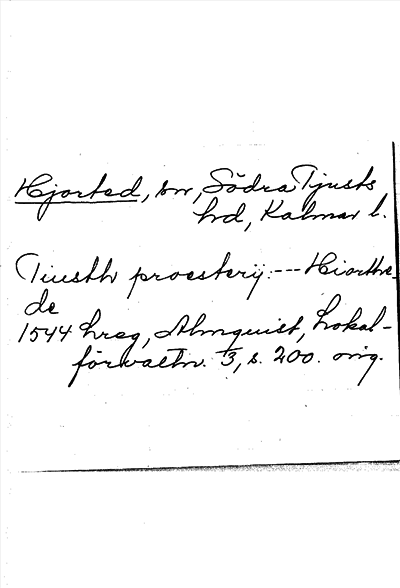 Hjorted, sn, Södra Tjusts
hd, Kalmar l.
Tiusth proesterij:---Hiorthe-
de
1544 hreg, Almquist, Lokal-
förvaltn. 3, s. 200. orig.